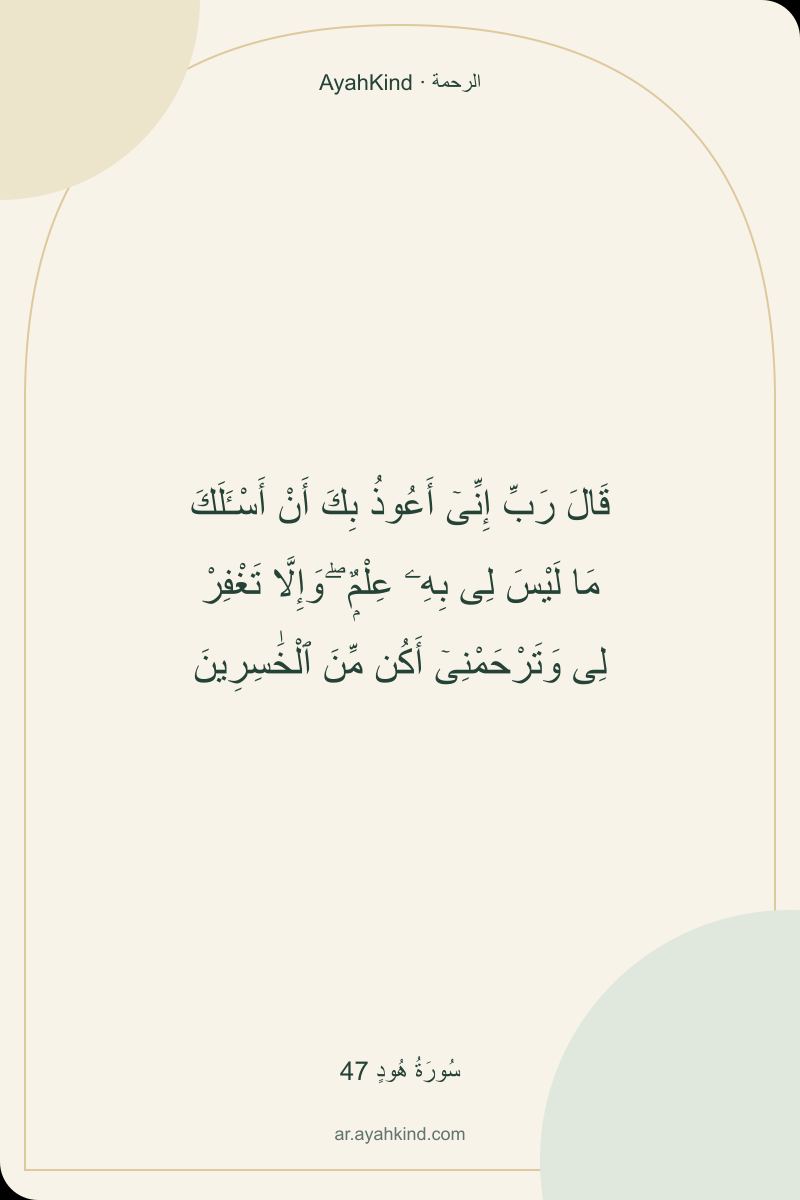 AyahKind · الرحمة
قَالَ رَبِّ إِنِّىٓ أَعُوذُ بِكَ أَنْ أَسْـَٔلَكَ
مَا لَيْسَ لِى بِهِۦ عِلْمٌۭ ۖ وَإِلَّا تَغْفِرْ
لِى وَتَرْحَمْنِىٓ أَكُن مِّنَ ٱلْخَـٰسِرِينَ
سُورَةُ هُودٍ 47
ar.ayahkind.com